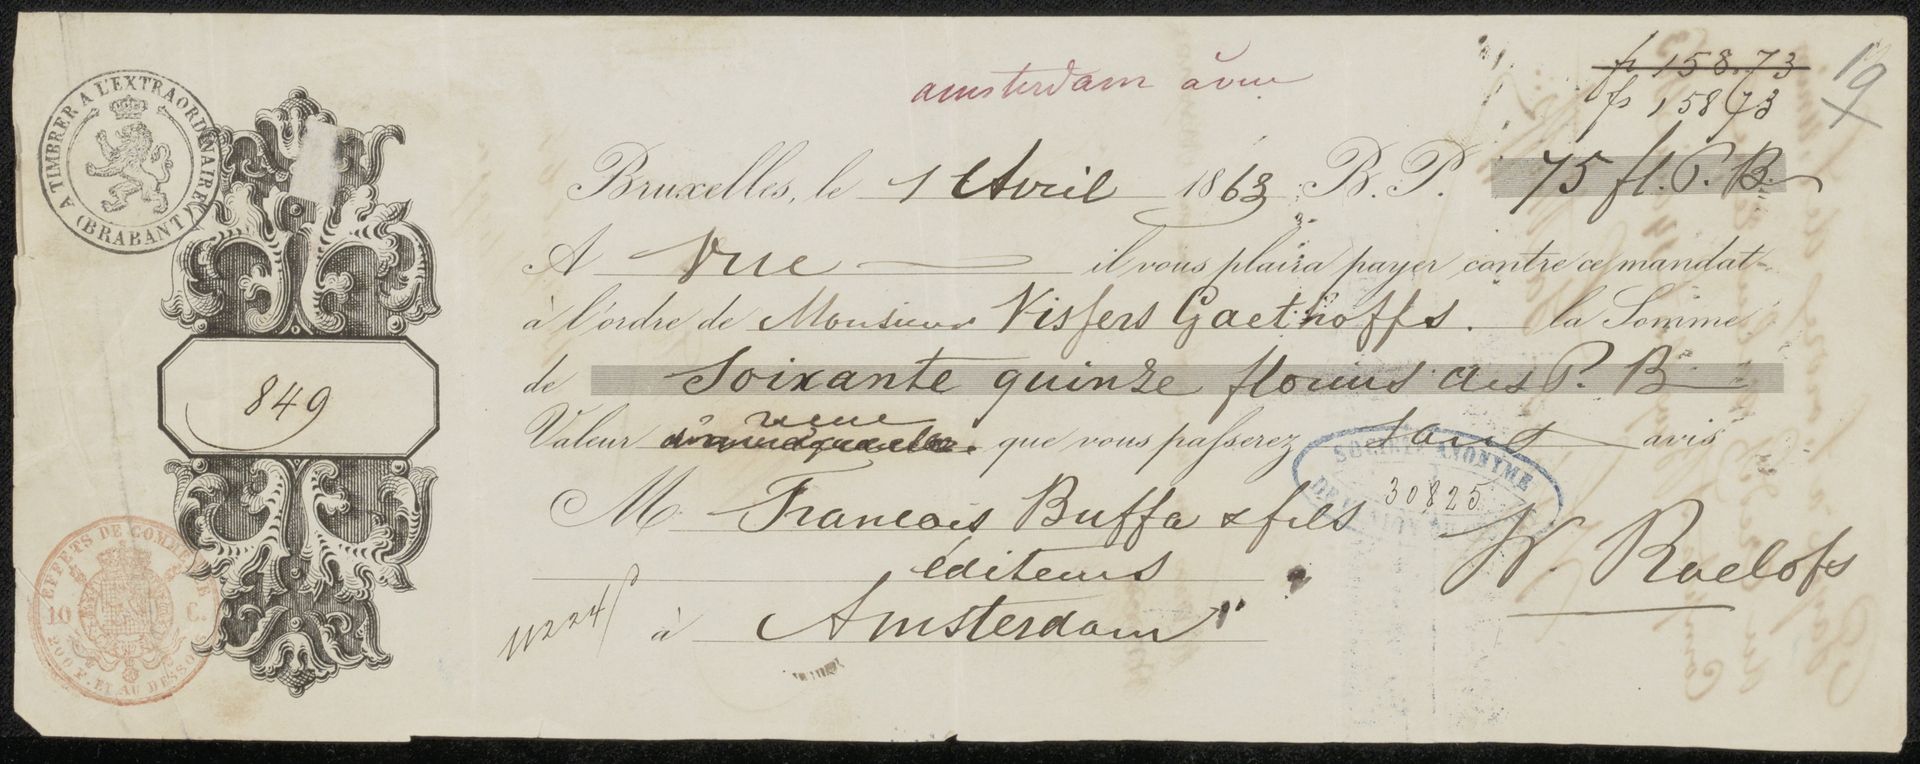 amsterdam à vue
fs 158.73
fs 158 73
19
A TIMBRER A L'EXTRAORDINAIRE
(BRABANT)
Bruxelles, le 1 Avril 1863 B. P. 75 fl. P. B.
A vue il vous plaira payer contre ce mandat
à l'ordre de Monsieur Visfers Gaethoffs. la Somme
de Soixante quinze florins des P. B
849
Valeur reçue que vous passerez sans avis
SOCIÉTÉ ANONYME
30825
M. Francois Buffa & fils
W. Roelofs
éditeurs
11224
à Amsterdam
EFFETS DE COMMERCE
10 C.
200 F. ET AU DESSO